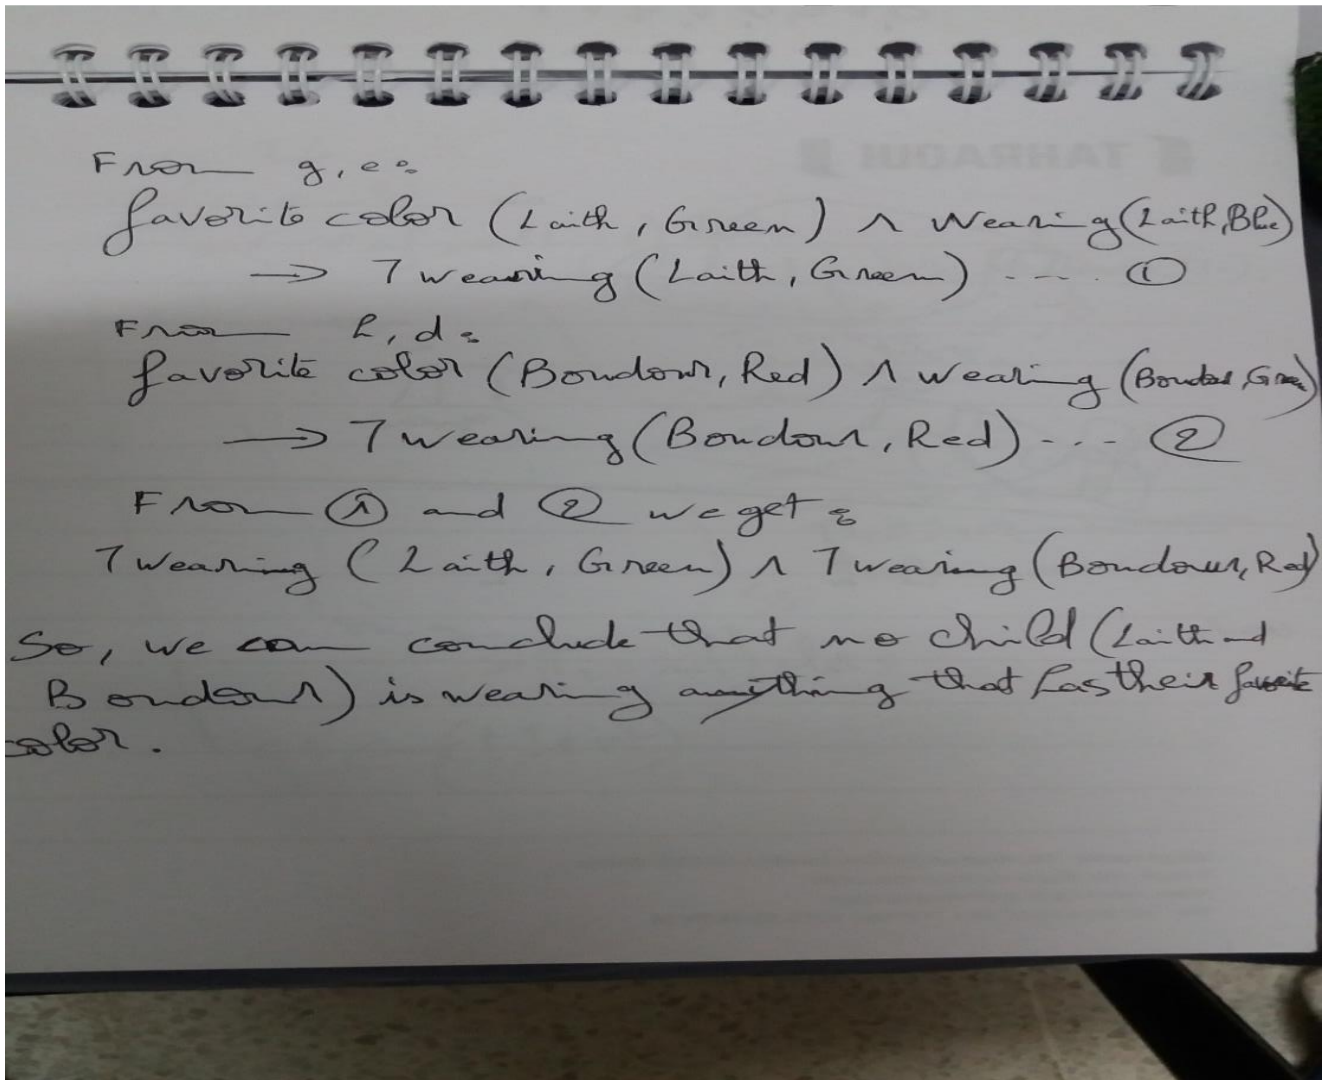 From g, e:
favorite color (Laith, Green) ∧ Wearing(Laith, Blue)
→ ¬ wearing (Laith, Green) .... ①
From h, d:
favorite color (Boudour, Red) ∧ wearing (Boudour, Green)
→ ¬ wearing (Boudour, Red) ... ②
From ① and ② we get:
¬ wearing (Laith, Green) ∧ ¬ wearing (Boudour, Red)
So, we can conclude that no child (Laith and
Boudour) is wearing anything that has their favorite
color.